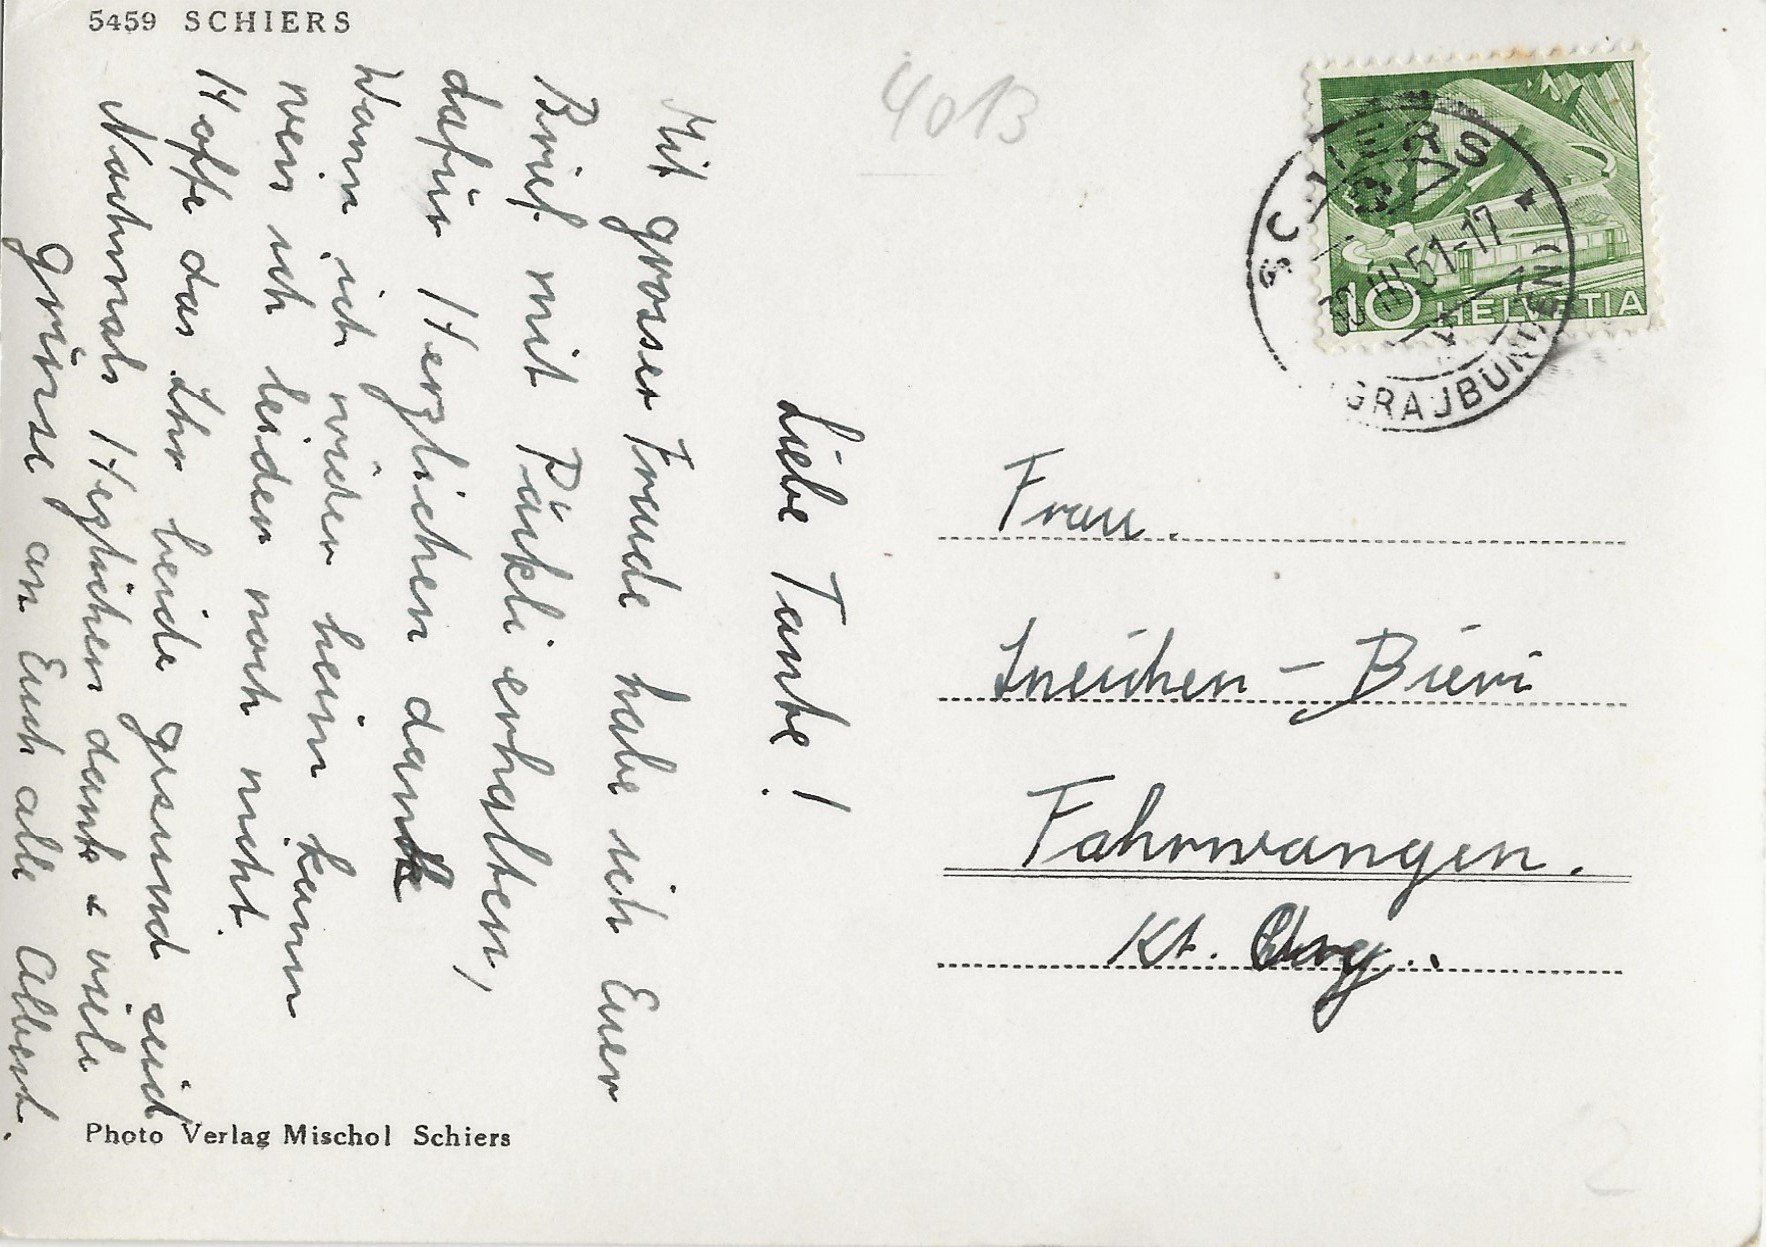 5459 SCHIERS
4013
Liebe Tante!
Mit grosser Fraude habe ich Euer
Brief mit Päckli erhalten,
dafür Herzlichen danke
Wann ich wider heim kann
weis ich leider noch nicht.
Hoffe das Ihr beide gesund seid
Nochmals Hezlichen dank & viele
Grüsse an Euch alle Albert.
Photo Verlag Mischol Schiers
SCHIERS
III 51-17
(GRAUBÜNDEN)
10 HELVETIA
Frau.
Ineichen - Bieri
Fahrwangen.
Kt. Arg.
2